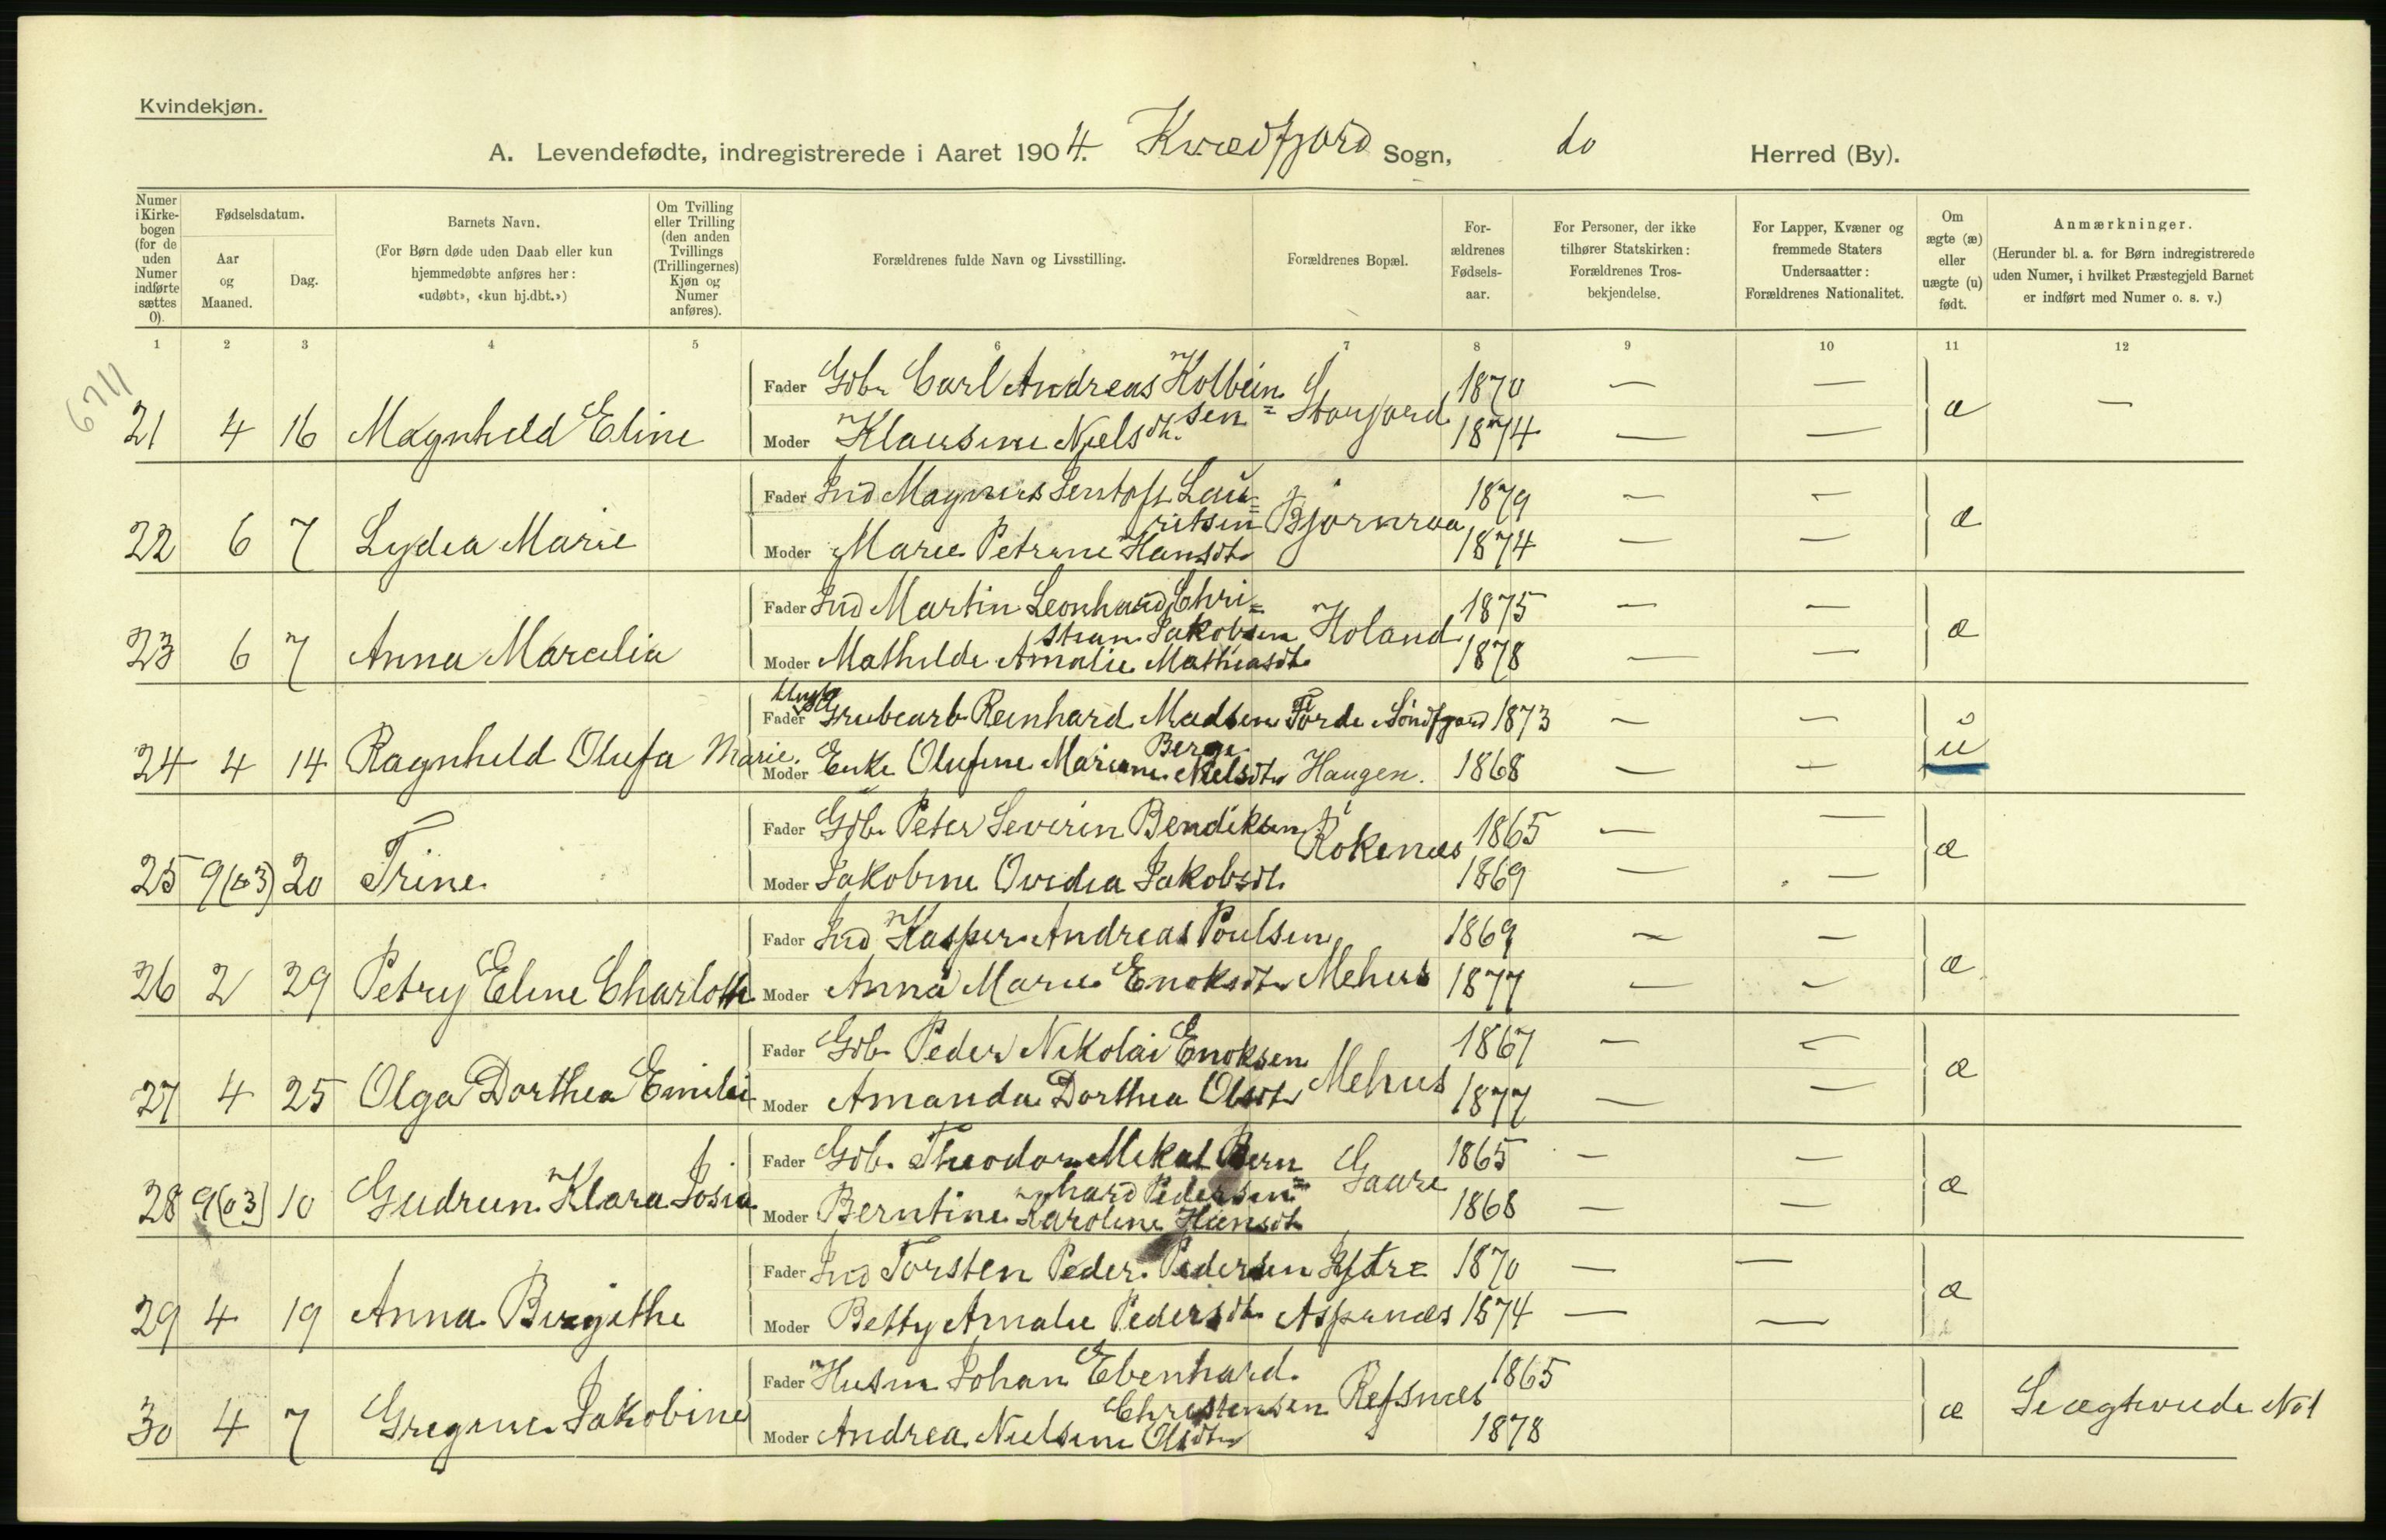 Kvindekjøn.
A. Levendefødte, indregistrerede i Aaret 1904. Kvædfjord Sogn, do Herred (By).
Numer i Kirke-bogen (for de uden Numer indførte sættes 0).
Fødselsdatum.
Aar og Maaned.
Dag.
Barnets Navn.
(For Børn døde uden Daab eller kun hjemmedøbte anføres her: «udøbt», «kun hj.dbt.»)
Om Tvilling eller Trilling (den anden Tvillings (Trillingernes) Kjøn og Numer anføres).
Forældrenes fulde Navn og Livsstilling.
Forældrenes Bopæl.
For-ældrenes Fødsels-aar.
For Personer, der ikke tilhører Statskirken: Forældrenes Tros-bekjendelse.
For Lapper, Kvæner og fremmede Staters Undersaatter: Forældrenes Nationalitet.
Om ægte (æ) eller uægte (u) født.
Anmærkninger.
(Herunder bl. a. for Børn indregistrerede uden Numer, i hvilket Præstegjeld Barnet er indført med Numer o. s. v.)
1 2 3 4 5 6 7 8 9 10 11 12
6711
Fader Gdb. Carl Andreas Kolbein 1870 — —
sen = Storjord
21 4 16 Magnhild Eline Moder Klausine Nielsdt. 1874 — — æ —
Fader Ind Magnus Lau= 1879 — —
ritsen Bjørnraa
22 6 7 Lydia Marie Moder Marie Petrine Hansdt. 1874 — — æ
Fader Ind Martin Leonhard Chri= 1875 — —
stian Jakobsen Holand
23 6 7 Anna Marcelia Moder Mathilde Amalie Mathiasdt. 1878 — — æ
Fader Grubearb. Reinhard Madsen Førde i Søndfjord 1873 — —
Berge
24 4 14 Ragnhild Olufa Marie. Moder Enke Olufine Mariane Nielsdt. Haugen. 1868 — — u
Fader Gdb. Peter Severin Bendiksen Røkenæs 1865 — —
25 9(03) 20 Trine Moder Jakobine Ovidia Jakobsdt. 1869 — — æ
Fader Ind Kasper Andreas Poulsen 1869 — —
26 2 29 Petry Eline Charlotte Moder Anna Marie Enoksdt. Mehus 1877 — — æ
Fader Gdb. Peder Nikolai Enoksen 1867 — —
27 4 25 Olga Dorthea Emilie Moder Amanda Dorthea Olsdt. Mehus 1877 — — æ
Fader Gdb. Theodor Mikal Bern 1865 — —
hard Pedersen = Gaare
28 9(03) 10 Gudrun Klara Josia Moder Berntine Karoline Hansdt. 1868 — — æ
Fader Ind Torsten Peder Pedersen Ystre= 1870 — —
29 4 19 Anna Birgithe Moder Betty Amalie Pedersdt. Aspenæs 1874 — — æ
Fader Husm Johan Ebenhard 1865
Christensen Refsnæs
30 4 7 Gregine Jakobine Moder Andrea Nielsine Olsdt. 1878 æ No 1